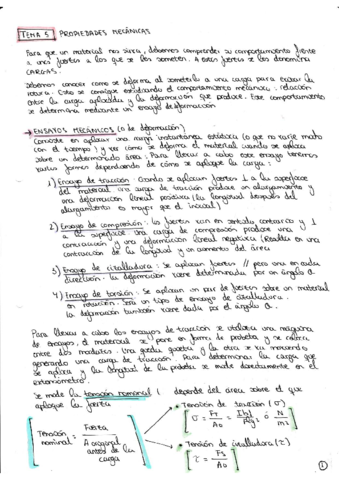 TEMA 5 PROPIEDADES MECÁNICAS
Para que un material nos sirva, debemos comprender su comportamiento frente
a unas fuerzas a las que los someten. A estas fuerzas se les denomina
CARGAS.
Debemos conocer como se deforma al someterlo a una carga para evitar la
rotura. Esto se consigue estudiando el comportamiento mecánico: relación
entre la carga aplicada y la deformación que produce. Este comportamiento
se determina mediante un ensayo de deformación
ENSAYOS MECÁNICOS (o de deformación)
Consiste en aplicar una carga instantánea estática (o que no varíe mucho
con el tiempo) y ver cómo se deforma el material cuando se aplica
sobre un determinado área. Para llevar a cabo este ensayo tenemos
varias formas dependiendo de cómo se aplique la carga:
1) Ensayo de tracción: Cuando se aplican fuerzas ⊥ a la superficie
del material. Una carga de tracción produce un alargamiento y
una deformación lineal positiva (la longitud después del
alargamiento es mayor que el inicial)
2) Ensayo de compresión: las fuerzas van en sentido contrario y ⊥
a la superficie. Una carga de compresión produce una
contracción y una deformación lineal negativa (Resulta en una
contracción de la longitud y un aumento del área
3) Ensayo de cizalladura: se aplican fuerzas // pero una en cada
dirección. La deformación viene determinada por un ángulo α.
4) Ensayo de torsión: Se aplican un par de fuerzas sobre un material
en rotación. Es un tipo de ensayo de cizalladura.
la deformación también viene dada por el ángulo α.
Para llevar a cabo los ensayos de tracción se utiliza una máquina
de ensayos, el material se pone en forma de probeta y se coloca
entre dos mordazas. Una queda quieta y la otra se va moviendo
generando una carga de tracción. Para determinar la carga que
se aplica y la longitud de la probeta se mide directamente en el
extensómetro.
Se mide la tensión nominal (depende del área sobre el que
aplique la fuerza
Tensión nominal = Fuerza / A ortogonal antes de la carga
• Tensión de tracción (σ)
σ = FT / A0 = lbf / in² ó N / m²
• Tensión de cizalladora (τ)
τ = Fs / A0
1